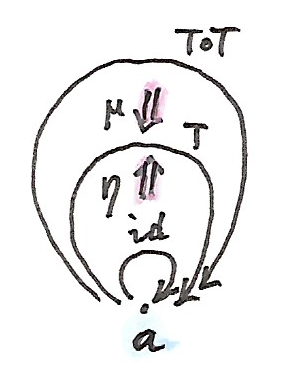 T∘T
μ
T
η
id
a